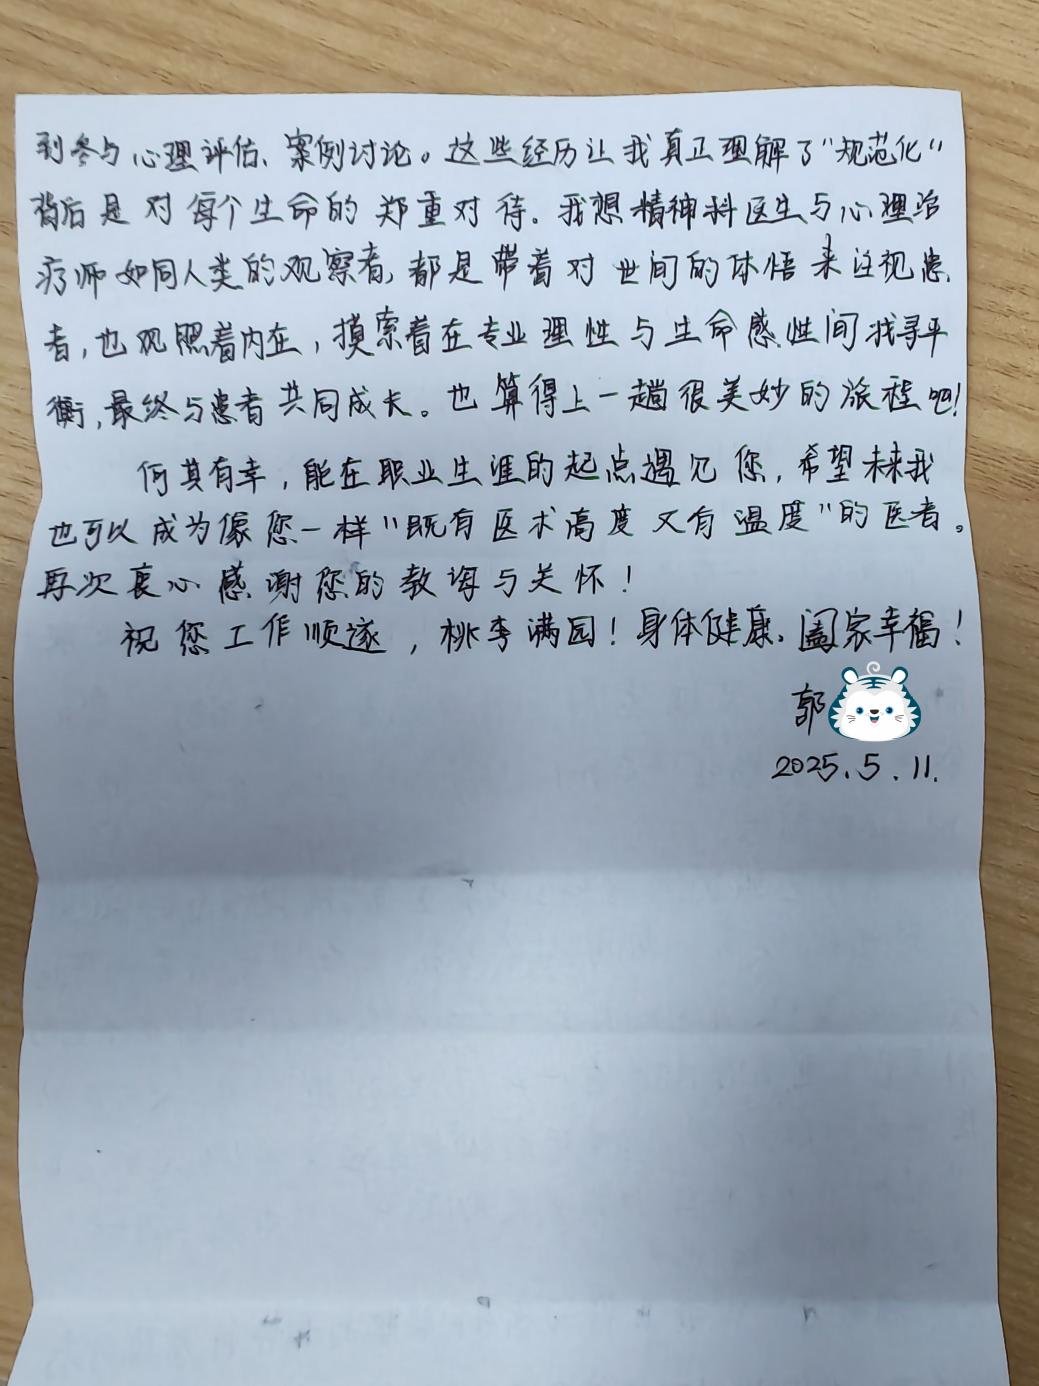 到参与心理评估、案例讨论。这些经历让我真正理解了“规范化”
背后是对每个生命的郑重对待。我想精神科医生与心理治
疗师如同人类的观察者，都是带着对世间的体悟来注视患
者，也观照着内在，摸索着在专业理性与生命感性间找寻平
衡，最终与患者共同成长。也算得上一趟很美妙的旅程吧！
何其有幸，能在职业生涯的起点遇见您，希望未来我
也可以成为像您一样“既有医术高度又有温度”的医者。
再次衷心感谢您的教诲与关怀！
祝您工作顺遂，桃李满园！身体健康、阖家幸福！
郭
2025.5.11.